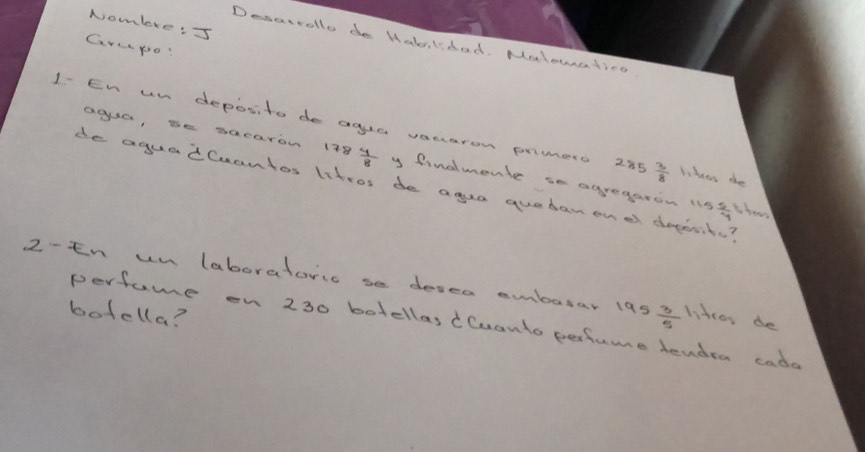 Desarrollo de Habilidad. Matematica.
Nombre: J
Grupo:
1- En un depósito de agua vaciaron primero 285 3/8 litros de
agua, se sacarón 178 4/8 y finalmente se agregarón 115 litros
de agua ¿Cuantos litros de agua quedan en el depósito?
2- En un laboratorio se desea embasar 195 3/5 litros de
perfume en 230 botellas ¿Cuanto perfume tendra cada
botella?